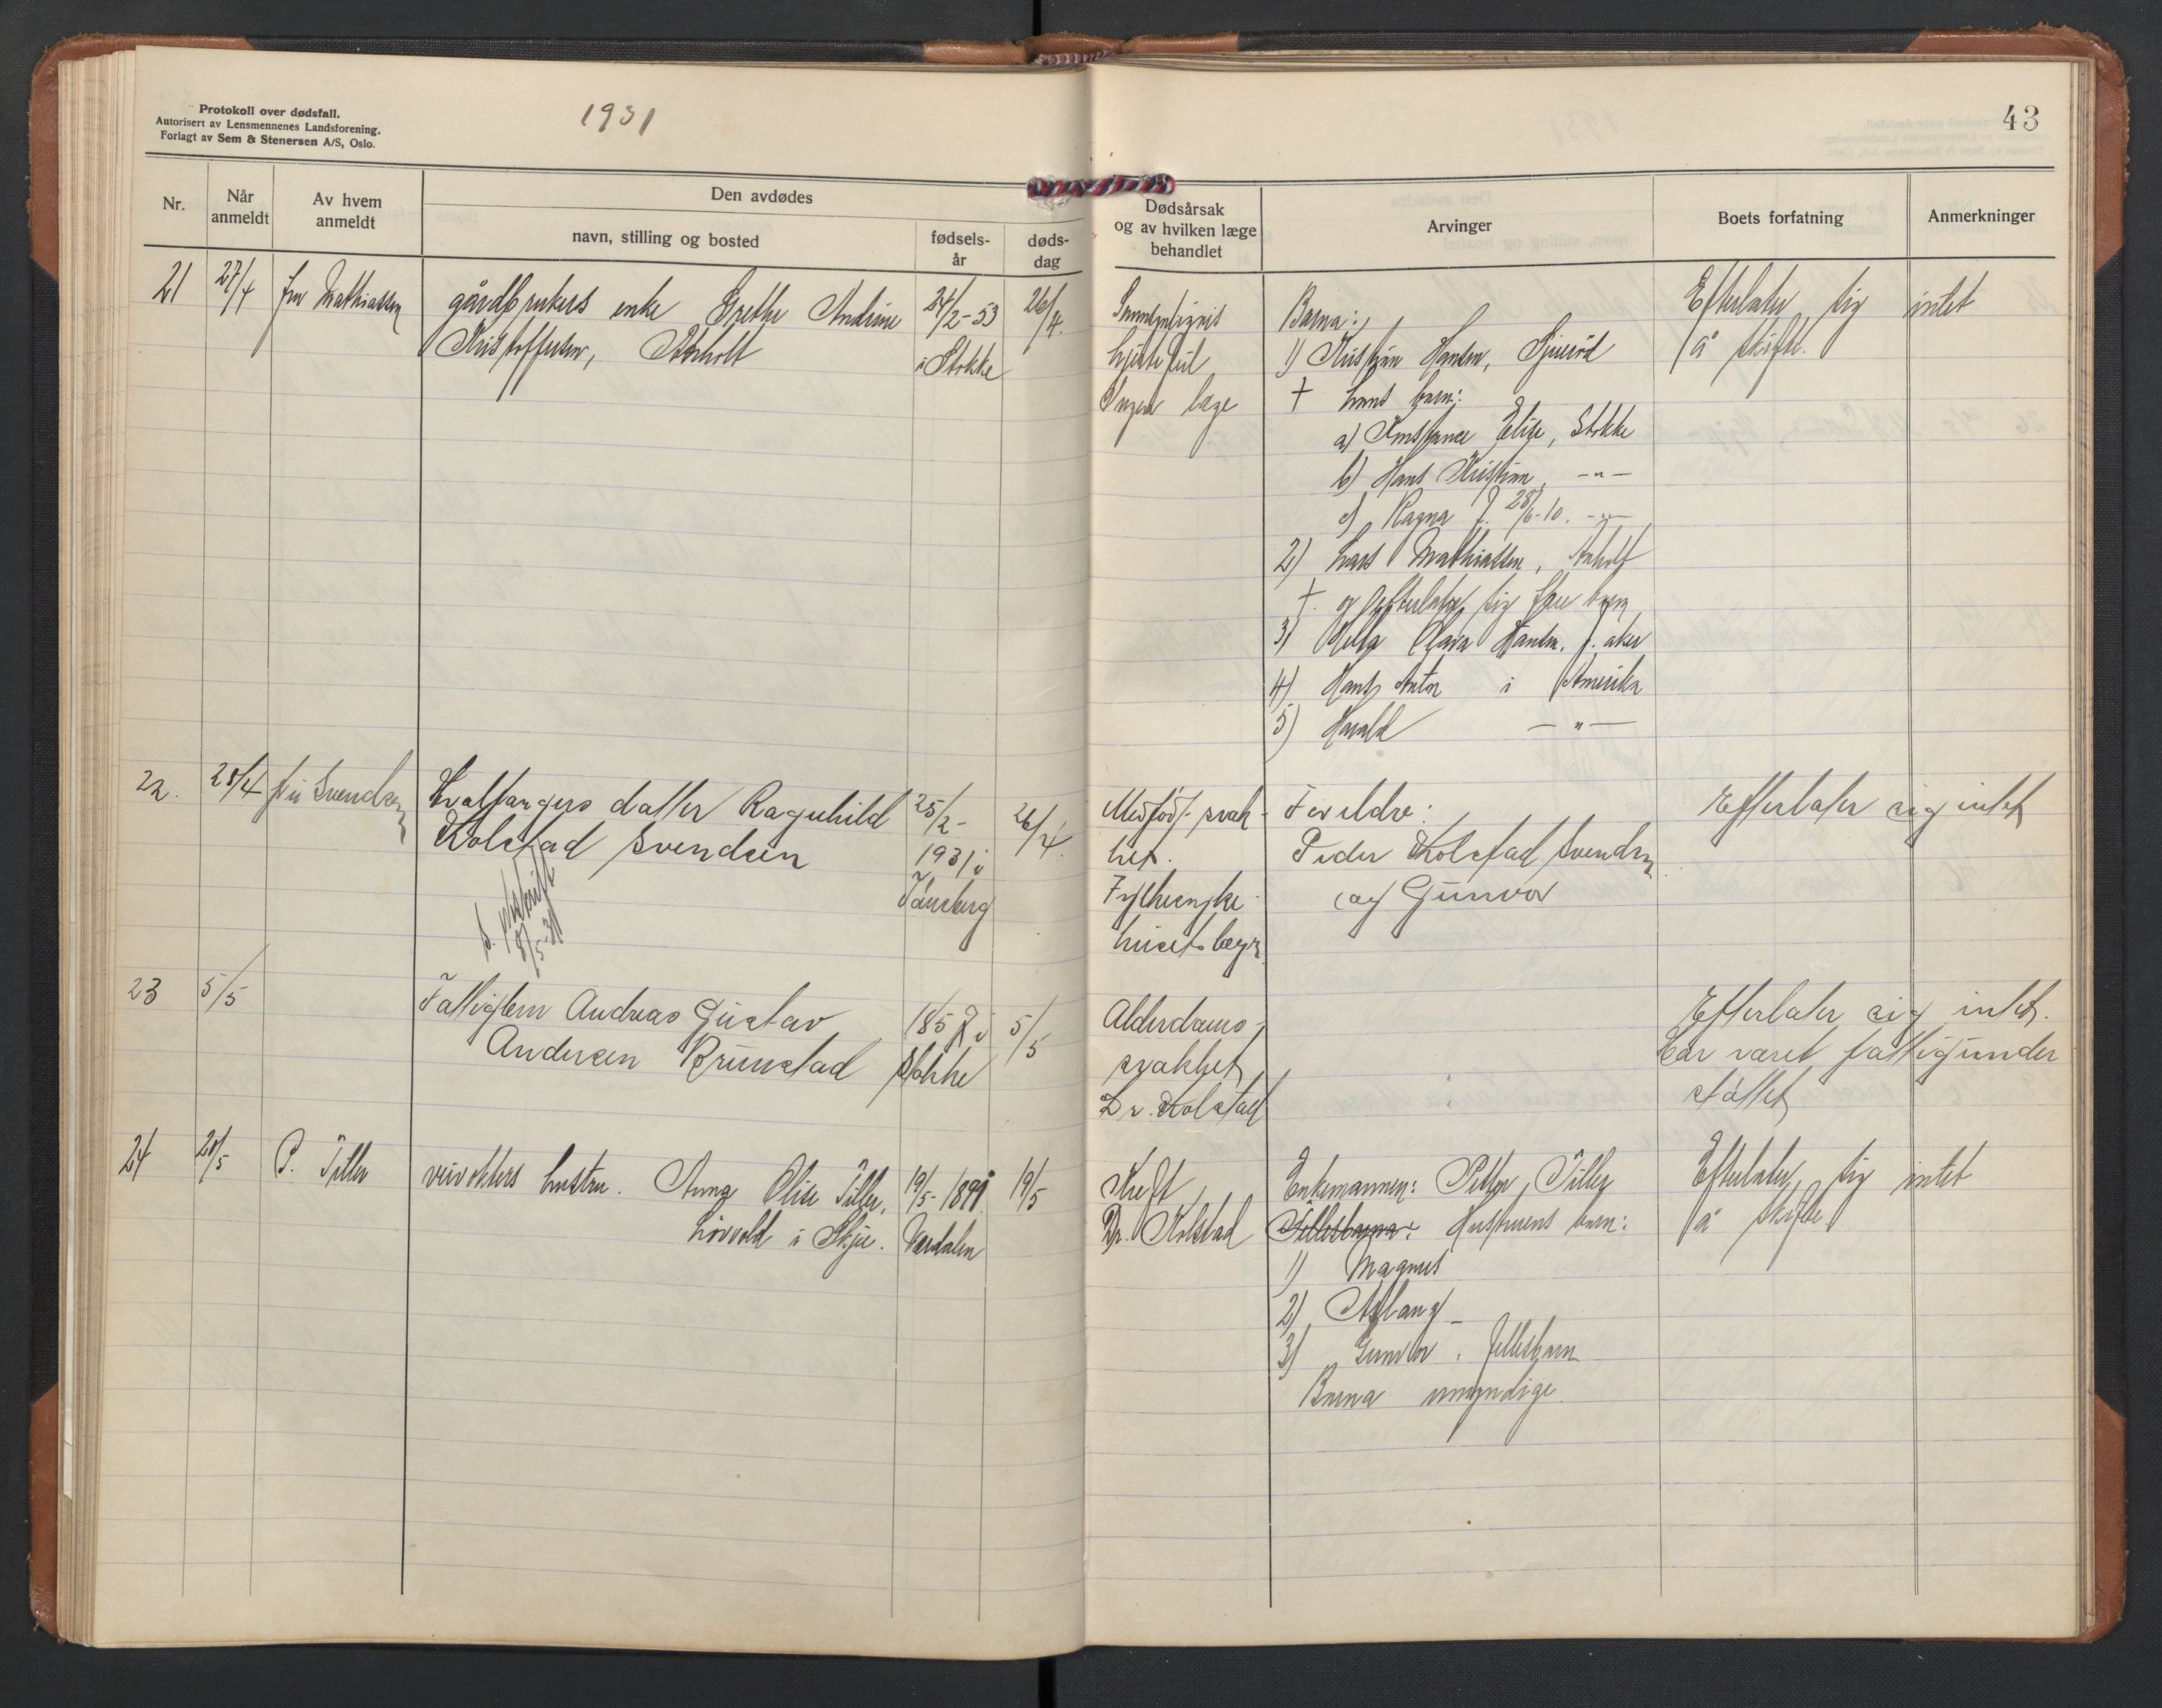 Protokoll over dødsfall.
Autorisert av Lensmennenes Landsforening.
Forlagt av Sem & Stenersen A/S, Oslo.
1931
43
Nr.
Når anmeldt
Av hvem anmeldt
Den avdødes
navn, stilling og bosted
fødsels-
år
døds-
dag
Dødsårsak
og av hvilken læge
behandlet
Arvinger
Boets forfatning
Anmerkninger
21 27/4 fru Mathiassen gårdbrukers enke Grethe Andrine 24/2-53 26/4.
Kristoffersen, i Stokke
hjertefeil
Ingen læge
Barna:
1) Kristian Hansen,
† hans barn:
a) Konstance Elise, Stokke
b) Hans Kristian, -"-
c) Ragna f. 28/6-10. -"-
2) Lars Mathiassen,
† og efterlater sig barn
3) Olava Hansen,
4) Hans Anton i Amerika
5) Harald -"-
Efterlater sig intet
å skifte.
22. 28/4 fru Svendsen Hvalfangers datter Ragnhild 25/2- 26/4.
Kolstad Svendsen 1931 i
Tønsberg
8/5-31
Medfødt svak-
het.
Fylkessyke-
husets læge
Foreldre:
Peder Kolstad Svendsen
og Gunvor
Efterlater sig intet
23 5/5 Fattiglem Andreas Gustav 185 i 5/5
Andersen Brunstad Stokke
Alderdoms-
svakhet
Dr. Kolstad
Efterlater sig intet.
Har været fattigunder
støttet
24 20/5 P. Tiller veivokters hustru. Anna Olise Tiller, 19/5-1891. 19/5
i Skjee. Verdalen
Kreft
Dr. Kolstad
Enkemannen: Petter Tiller
Fellesbarna: Hustruens barn:
1) Magnus
2) Aslaug -
3) Gunvor, fellesbarn
Barna umyndige.
Efterlater sig intet
å skifte